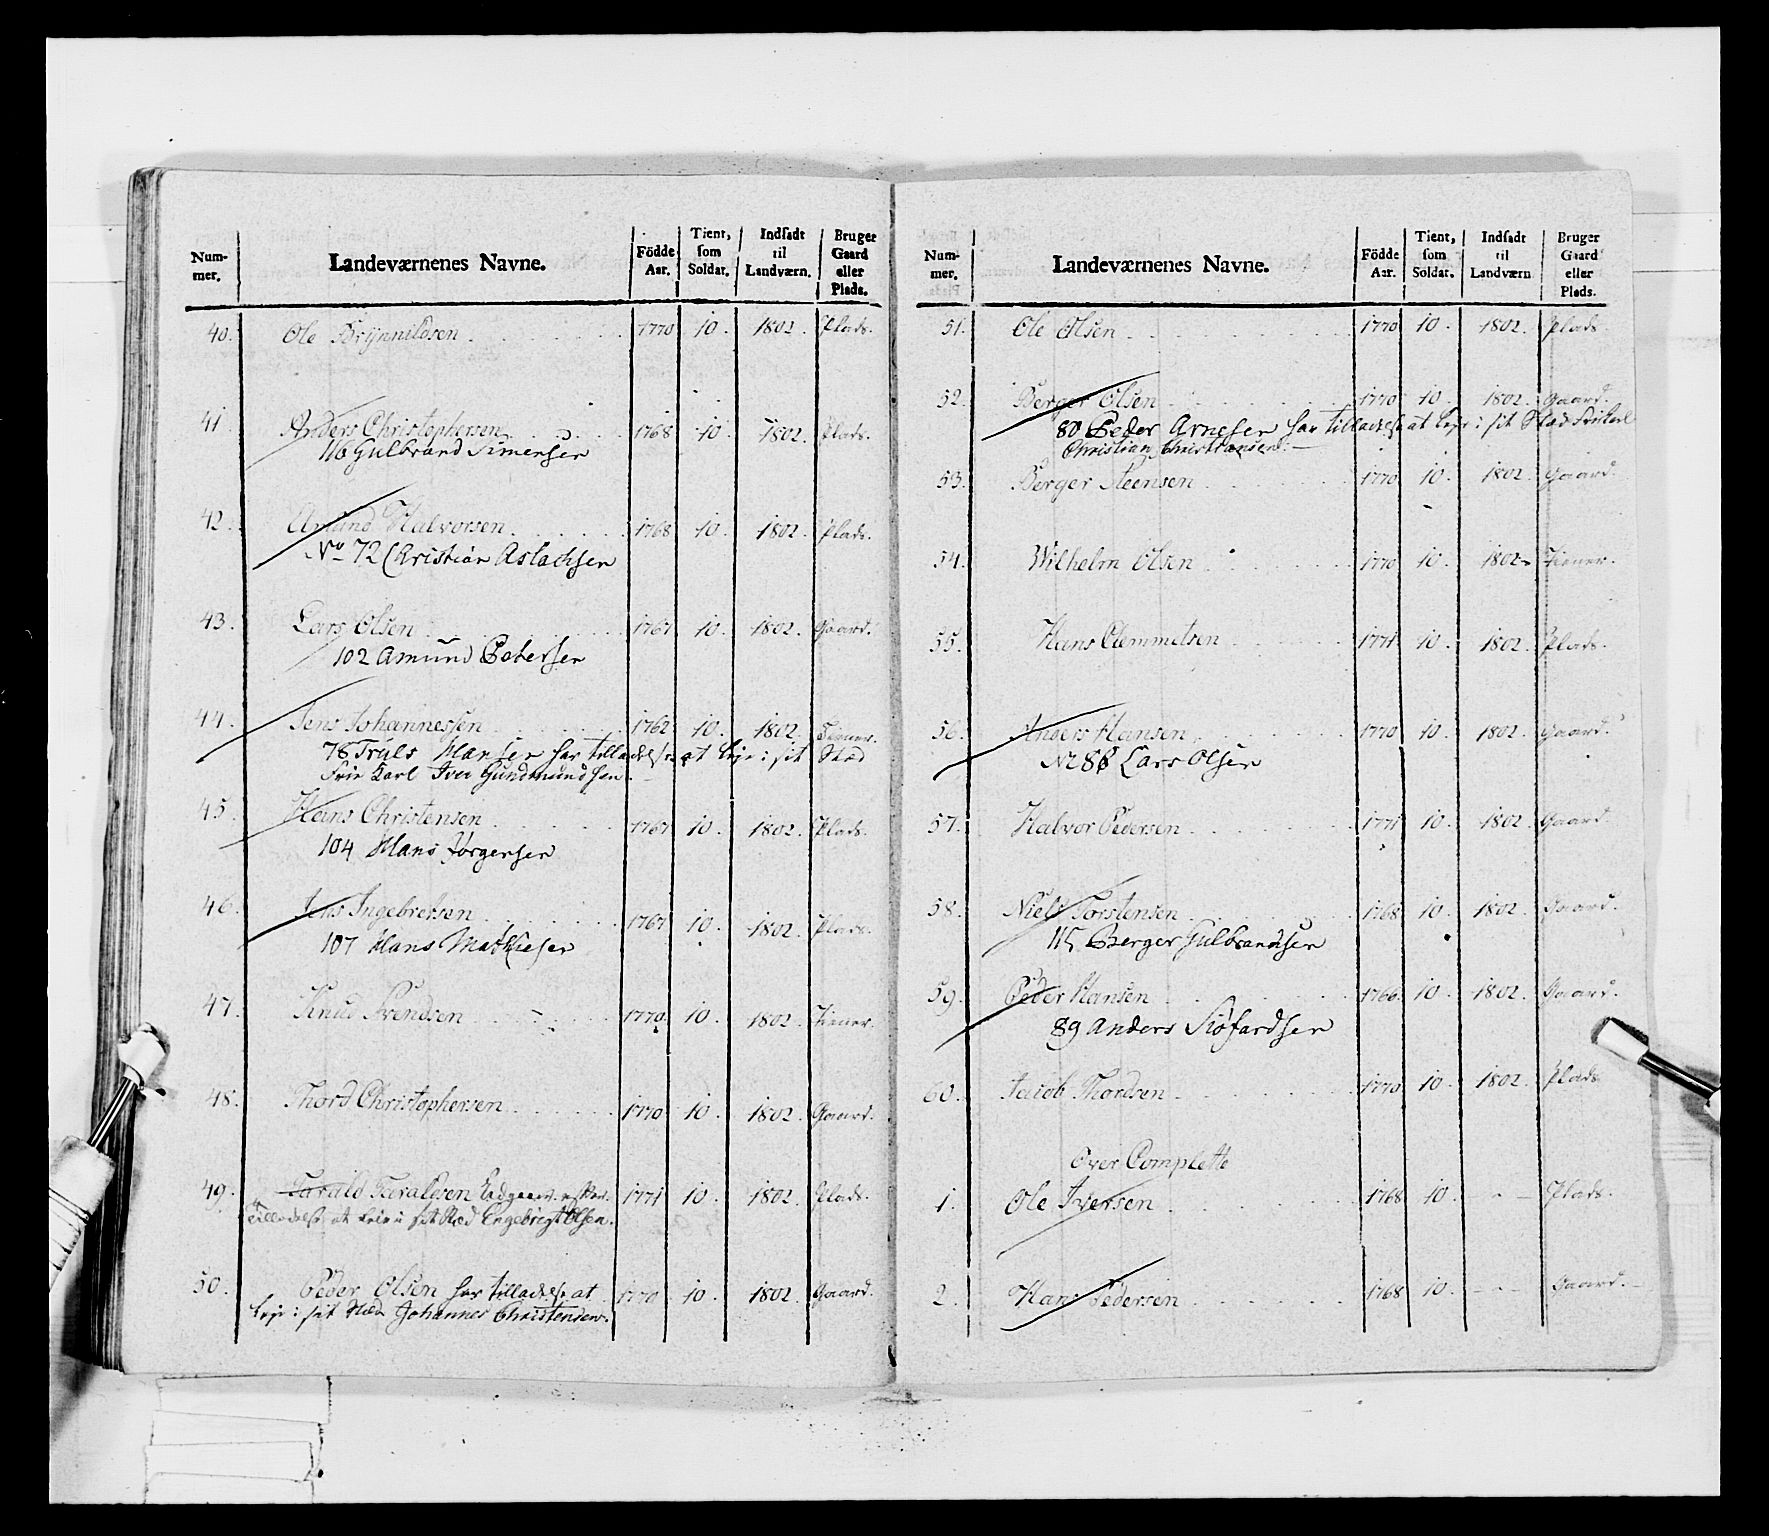 Num-
mer.
Landeværnenes Navne.
Födde
Aar.
Tient,
som
Soldat.
Indsadt
til
Landværn.
Bruger
Gaard
eller
Plads.
40. Ole Brynnildsen 1770 10. 1802. Plads.
41. Anders Christophersen 1768 10. 1802. Plads.
116 Gulbrand Simensen
42. Amund Halvorsen 1768 10. 1802. Plads.
No 72 Christian Aslachsen
43. Lars Olsen 1767 10. 1802. Gaard.
102 Amund Petersen
44. Jens Johannessen 1762 10. 1802. Tiener.
78 Truls Hansen har tilladelse at leje i sit Stæd
Frie Karl Iver Gundmundsen
45. Hans Christensen 1767 10. 1802. Plads.
104 Hans Jørgensen
46. Jens Ingebretsen 1767 10. 1802. Plads.
107 Hans Mathiesen
47. Knud Svendsen 1770 10. 1802. Tiener.
48. Thord Christophersen 1770 10. 1802. Gaard.
49. Tarald Taraldsen 1771 10. 1802. Plads.
tilladelse at leie i sit Stæd Engebrigt Olsen.
50. Peder Olsen har tilladelse at 1770 10. 1802. Gaard.
leje i sit Stæd Johannes Christensen.
Num-
mer.
Landeværnenes Navne.
Födde
Aar.
Tient,
som
Soldat.
Indsadt
til
Landværn
Bruger
Gaard
eller
Plads.
51. Ole Olsen 1770 10. 1802. Plads.
52. Berger Olsen 1770 10. 1802. Gaard.
80 Peder Arnesen har tilladelse at leje i sit Stæd Frikarl
Christian Christiansen.
53. Berger Steensen 1770 10. 1802. Gaard.
54. Wilhelm Olsen 1770 10. 1802. Tiener.
55. Hans Clemmetsen 1771 10. 1802. Plads.
56. Anders Hansen 1770 10. 1802. Gaard.
N 86 Lars Olsen
57. Halvor Pedersen 1771 10. 1802. Gaard.
58. Niels Torstensen 1768 10. 1802. Gaard.
115 Berger Gulbrandsen
59. Peder Hansen 1766. 10. 1802. Gaard.
89 Anders Siøfardsen
60. Jacob Thordsen 1770 10. 1802. Plads.
Over Complette
1. Ole Iversen 1768 10. Plads.
2. Hans Pedersen 1768 10. Gaard.